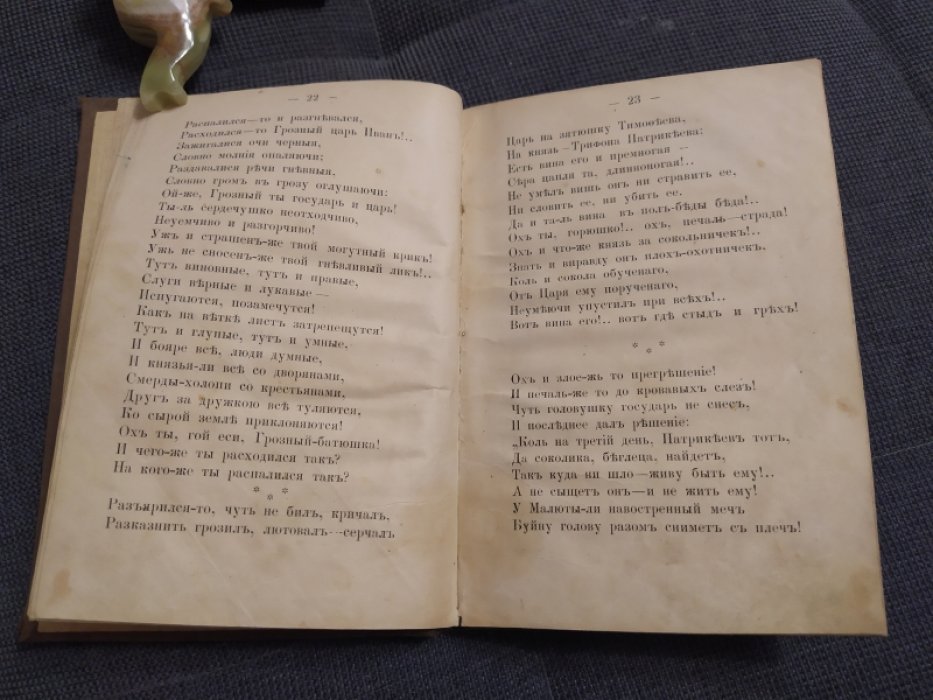 — 22 —
Распалился—то и разгнѣвался,
Расходился—то Грозный царь Иванъ!..
Зажигалися очи черныя,
Словно молнія опаляючи;
Раздавалися рѣчи гнѣвныя,
Словно громъ въ грозу оглушаючи:
Ой-же, Грозный ты государь и царь!
Ты-ль сердечушко неотходчиво,
Неуемчиво и разгорчиво!
Ужъ и страшенъ-же твой могутный крикъ!
Ужь не сносенъ-же твой гнѣвливый ликъ!..
Тутъ виновные, тутъ и правые,
Слуги вѣрные и лукавые —
Испугаются, позамечутся!
Какъ на вѣткѣ листъ затрепещутся!
Тутъ и глупые, тутъ и умные,
И бояре всѣ, люди думные,
И князья-ли всѣ со дворянами,
Смерды-холопи со крестьянами,
Другъ за дружкою всѣ туляются,
Ко сырой землѣ приклоняются!
Охъ ты, гой еси, Грозный-батюшка!
И чего-же ты расходился такъ?
На кого-же ты распалился такъ?
* * *
Разъярился-то, чуть не билъ, кричалъ,
Разказнить грозилъ, лютовалъ—серчалъ
— 23 —
Царь на зятюшку Тимоѳѣева,
На князь—Трифона Патрикѣева:
Есть вина его и премногая —
Сѣра цапля та, длинноногая!..
Не умѣлъ вишь онъ ни стравить ее,
Ни словить ее, ни убить ее.
Да и та-ль вина въ полъ-бѣды бѣда!..
Охъ ты, горюшко!.. охъ, печаль—страда!
Охъ и что-же князь за сокольничекъ!..
Знать и вправду онъ плохъ-охотничекъ,
Коль и сокола обученаго,
Отъ Царя ему порученаго,
Неумѣючи упустилъ при всѣхъ!..
Вотъ вина его!.. вотъ гдѣ стыдъ и грѣхъ!
* * *
Охъ и злое-жь то прегрѣшеніе!
И печаль-же то до кровавыхъ слезъ!
Чуть головушку государь не снесъ,
И послѣднее далъ рѣшеніе:
„Коль на третій день, Патрикѣевъ тотъ,
Да соколика, бѣглеца, найдетъ,
Такъ куда ни шло—живу быть ему!..
А не сыщетъ онъ—и не жить ему!
У Малюты-ли навостренный мечъ
Буйну голову разомъ сниметъ съ плечъ!